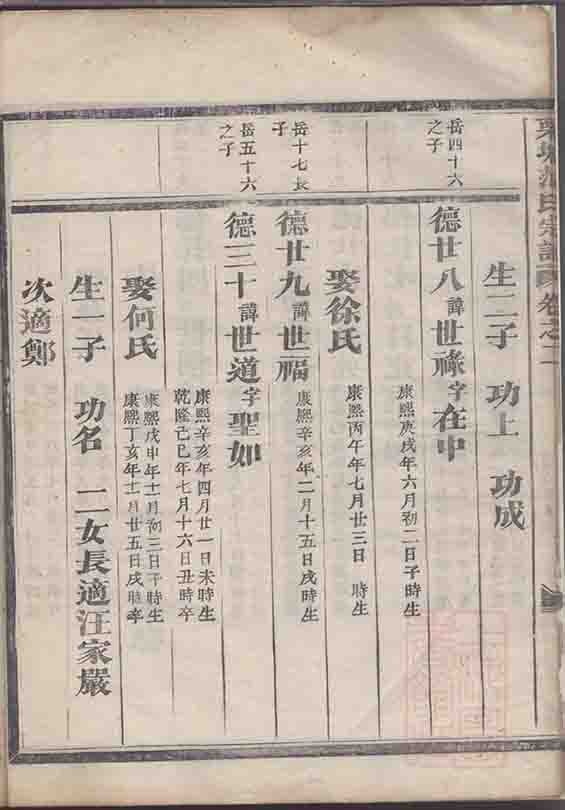 宗譜
卷之二
生二子 功上 功成
岳四十六
之子
德廿八諱世祿字在中
康熙庚戌年六月初二日子時生
娶徐氏
康熙丙午年七月廿三日 時生
岳十七長
子
德廿九諱世福
康熙辛亥年二月十五日戌時生
岳五十六
之子
德三十諱世道字聖如
康熙辛亥年四月廿一日未時生
乾隆己巳年七月十六日丑時卒
娶何氏
康熙戊申年十一月初三日子時生
康熙丁亥年十一月廿五日戌時卒
生一子 功名 二女長適汪家嚴
次適鄭